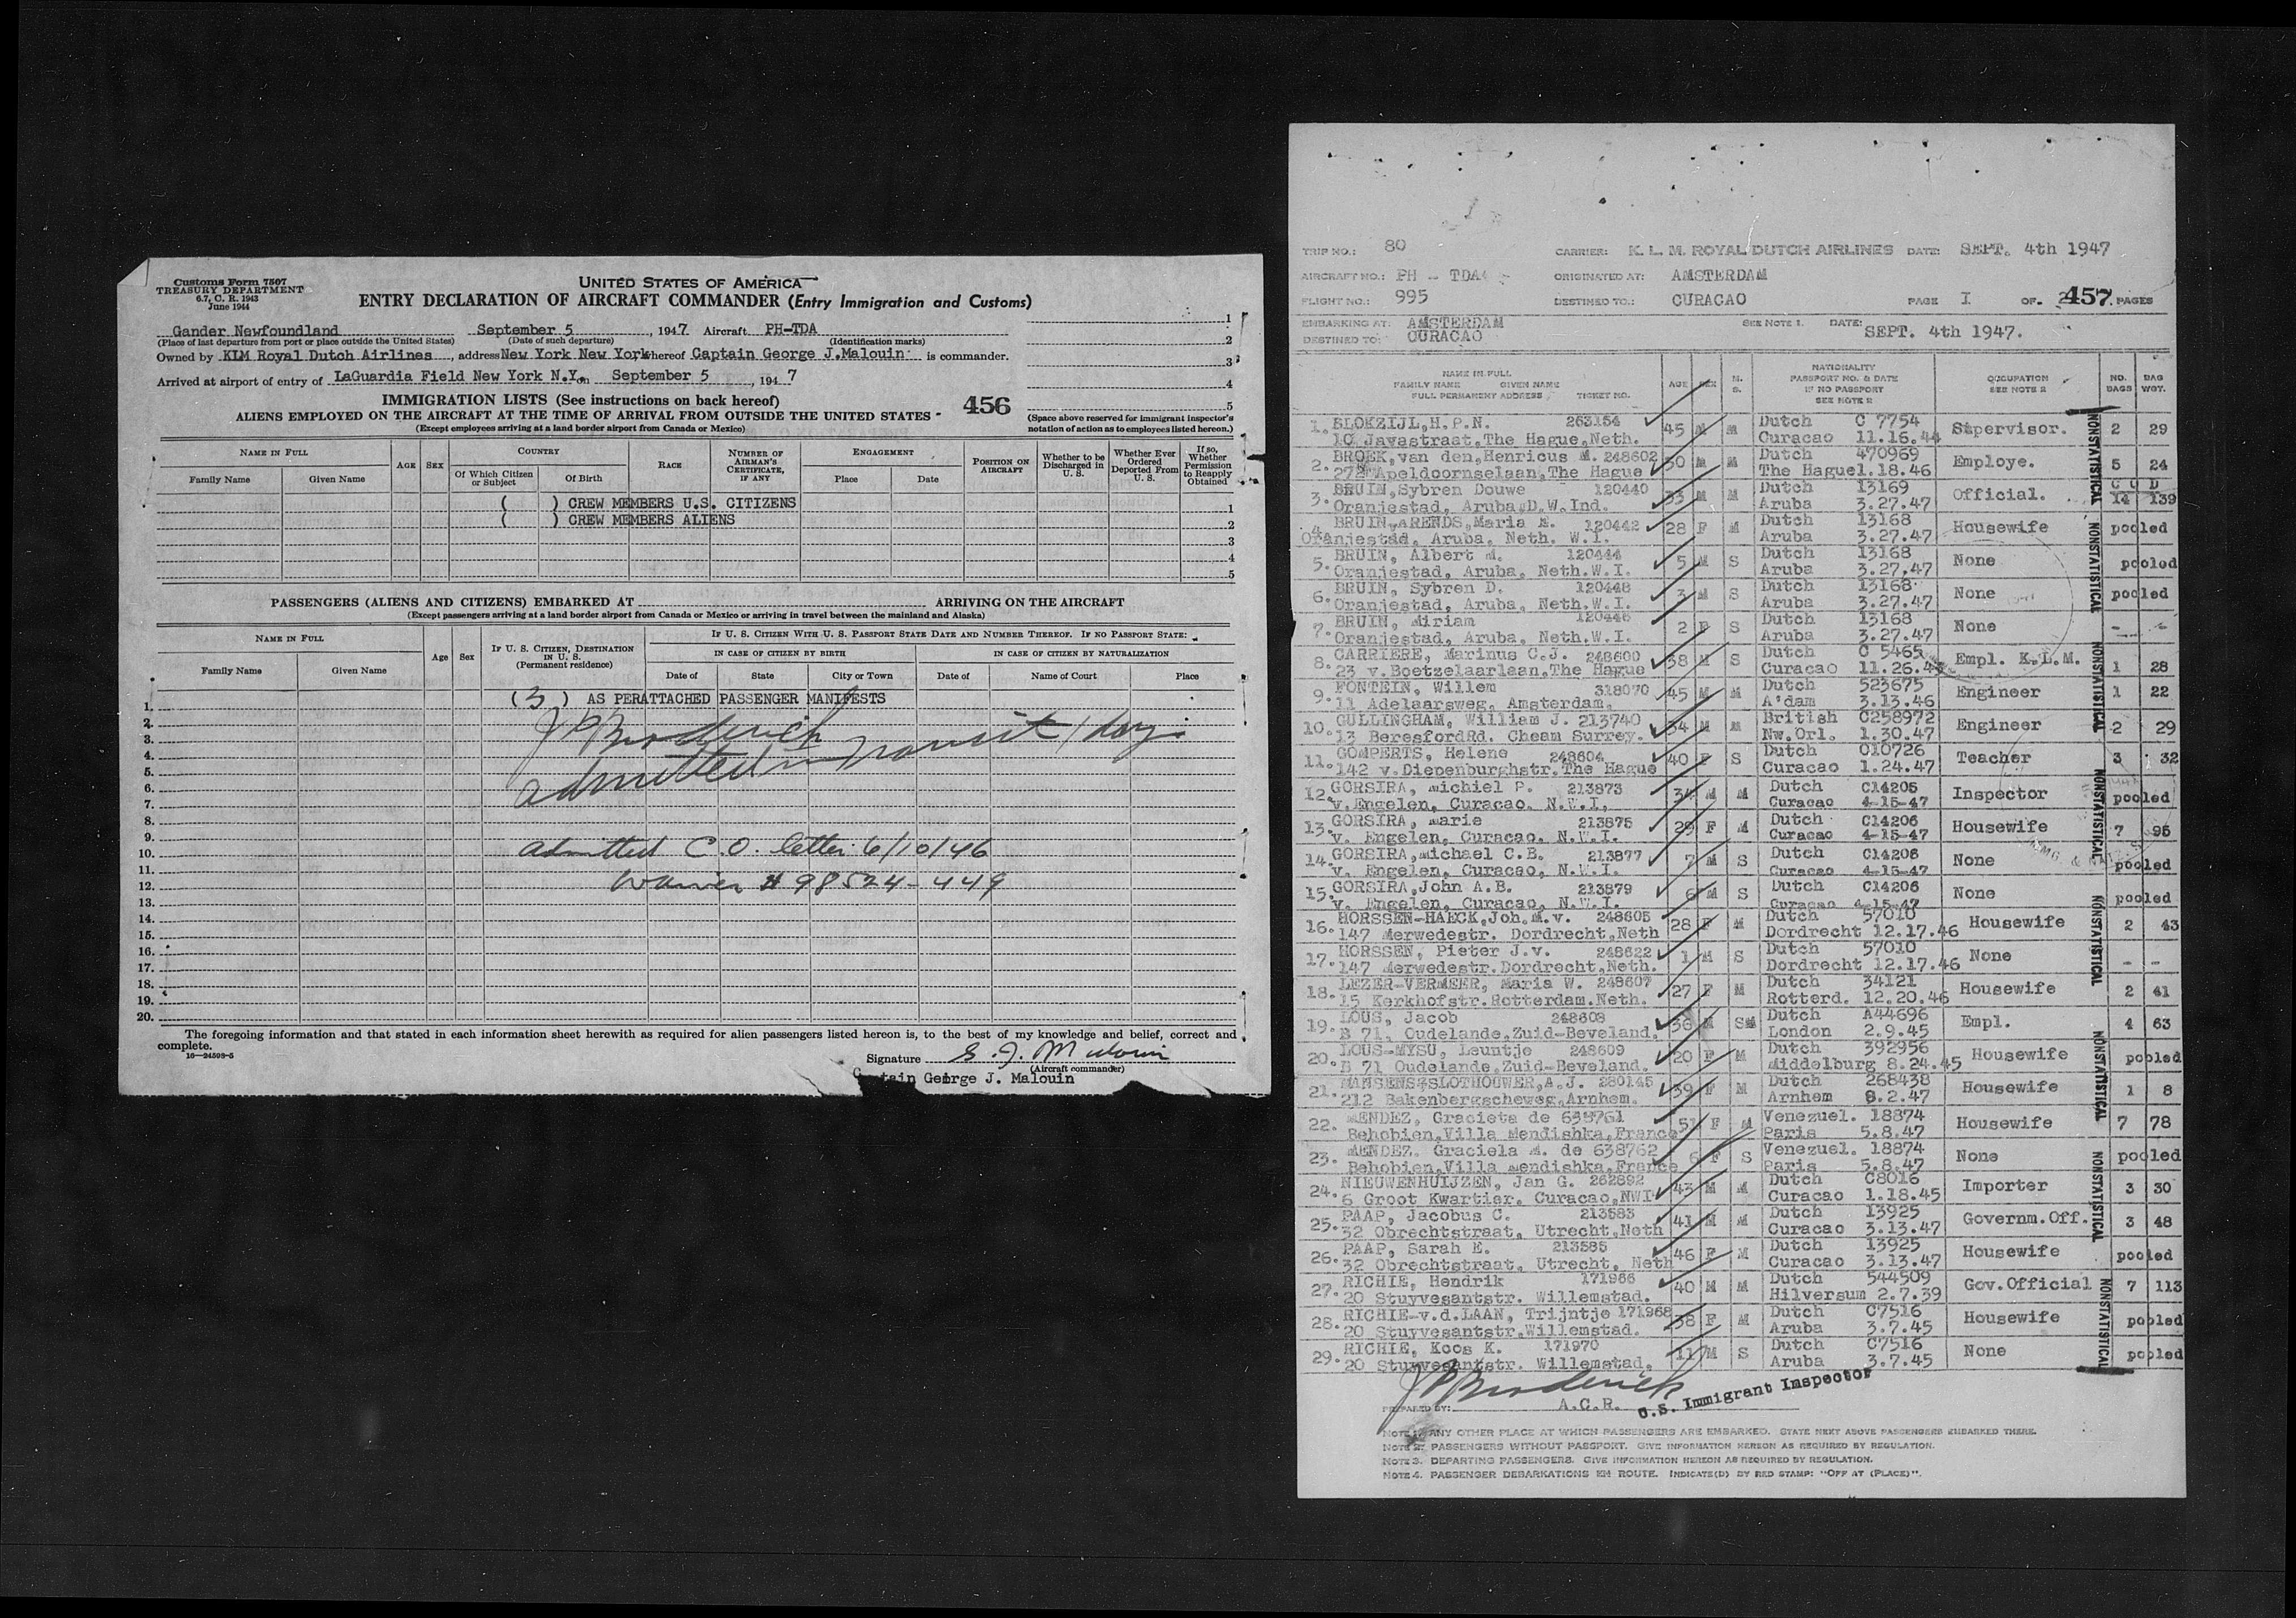 Customs Form 7507
TREASURY DEPARTMENT
6.7, C. R. 1943
June 1944
UNITED STATES OF AMERICA
ENTRY DECLARATION OF AIRCRAFT COMMANDER (Entry Immigration and Customs)
Gander Newfoundland September 5, 1947 Aircraft PH-TDA
(Place of last departure from port or place outside the United States) (Date of such departure) (Identification marks)
Owned by KLM Royal Dutch Airlines, address New York New York hereof Captain George J.Malouin is commander.
Arrived at airport of entry of LaGuardia Field New York N.Y. on September 5, 1947
IMMIGRATION LISTS (See instructions on back hereof)
ALIENS EMPLOYED ON THE AIRCRAFT AT THE TIME OF ARRIVAL FROM OUTSIDE THE UNITED STATES -
(Except employees arriving at a land border airport from Canada or Mexico)
456
1
2
3
4
5
(Space above reserved for immigrant inspector's
notation of action as to employees listed hereon.)
NAME IN FULL
Family Name Given Name
AGE SEX
COUNTRY
Of Which Citizen or Subject Of Birth
RACE
NUMBER OF AIRMAN'S CERTIFICATE, IF ANY
ENGAGEMENT
Place Date
POSITION ON AIRCRAFT
Whether to be Discharged in U. S.
Whether Ever Ordered Deported From U. S.
If so, Whether Permission to Reapply Obtained
( ) CREW MEMBERS U.S. CITIZENS 1
( ) CREW MEMBERS ALIENS 2
3
4
5
PASSENGERS (ALIENS AND CITIZENS) EMBARKED AT ARRIVING ON THE AIRCRAFT
(Except passengers arriving at a land border airport from Canada or Mexico or arriving in travel between the mainland and Alaska)
NAME IN FULL
Family Name Given Name
Age Sex
IF U. S. CITIZEN, DESTINATION IN U. S.
(Permanent residence)
IF U. S. CITIZEN WITH U. S. PASSPORT STATE DATE AND NUMBER THEREOF. IF NO PASSPORT STATE:
IN CASE OF CITIZEN BY BIRTH IN CASE OF CITIZEN BY NATURALIZATION
Date of State City or Town Date of Name of Court Place
(3) AS PER ATTACHED PASSENGER MANIFESTS
1.
2.
J P Broderick
3.
admitted in transit 1 day
4.
5.
6.
7.
8.
9.
10. admitted C.O. letter 6/10/46
11.
12. Waiver # 98524-449
13.
14.
15.
16.
17.
18.
19.
20.
The foregoing information and that stated in each information sheet herewith as required for alien passengers listed hereon is, to the best of my knowledge and belief, correct and complete.
16—24593-5
Signature G. J. Malouin
(Aircraft commander)
Captain George J. Malouin
TRIP NO.: 80 CARRIER: K. L. M. ROYAL DUTCH AIRLINES DATE: SEPT. 4th 1947
AIRCRAFT NO.: PH - TDA ORIGINATED AT: AMSTERDAM
FLIGHT NO.: 995 DESTINED TO.: CURACAO PAGE I OF. 457 PAGES
EMBARKING AT: AMSTERDAM SEE NOTE 1. DATE: SEPT. 4th 1947.
DESTINED TO: CURACAO
NAME IN FULL
FAMILY NAME GIVEN NAME
FULL PERMANENT ADDRESS TICKET NO.
AGE SEX M. S.
NATIONALITY
PASSPORT NO. & DATE
IF NO PASSPORT
SEE NOTE 2
OCCUPATION
SEE NOTE 2
NO. BAGS BAG WGT.
1. BLOKZIJL,H.P.N. 263154 45 M M Dutch C 7754 Supervisor. 2 29
10 Javastraat,The Hague,Neth. Curacao 11.16.44
2. BROEK,van den,Henricus M. 248602 50 M M Dutch 470969 Employe. 5 24
272 Apeldoornselaan,The Hague The Hague1.18.46
3. BRUIN,Sybren Douwe 120440 33 M M Dutch 13169 Official. 14 139
Oranjestad, Aruba.D.W.Ind. Aruba 3.27.47
4. BRUIN-ARENDS,Maria E. 120442 28 F M Dutch 13168 Housewife pooled
Oranjestad, Aruba, Neth. W.I. Aruba 3.27.47
5. BRUIN, Albert M. 120444 5 M S Dutch 13168 None pooled
Oranjestad, Aruba, Neth.W.I. Aruba 3.27.47
6. BRUIN, Sybren D. 120448 3 M S Dutch 13168 None pooled
Oranjestad, Aruba, Neth.W.I. Aruba 3.27.47
7. BRUIN, Miriam 120446 2 F S Dutch 13168 None - -
Oranjestad, Aruba, Neth.W.I. Aruba 3.27.47
8. CARRIERE, Marinus C.J. 248600 38 M S Dutch C 5465 Empl. K.L.M. 1 28
23 v. Boetzelaarlaan,The Hague Curacao 11.26.
9. FONTEIN, Willem 318070 45 M M Dutch 523675 Engineer 1 22
11 Adelaarsweg, Amsterdam. A'dam 3.13.46
10. GULLINGHAM, William J. 213740 34 M M British C258972 Engineer 2 29
13 BeresfordRd. Cheam Surrey. Nw.Orl. 1.30.47
11. GOMPERTS, Helene 248604 40 F S Dutch C10726 Teacher 3 32
142 v.Diepenburghstr.The Hague Curacao 1.24.47
12. GORSIRA, Michiel P. 213873 34 M M Dutch C14205 Inspector pooled
v.Engelen, Curacao. N.W.I. Curacao 4-15-47
13. GORSIRA, Marie 213875 29 F M Dutch C14206 Housewife 7 95
v. Engelen, Curacao, N.W.I. Curacao 4-15-47
14. GORSIRA,Michael C.B. 213877 7 M S Dutch C14206 None pooled
v. Engelen, Curacao, N.W.I. Curacao 4-15-47
15. GORSIRA,John A.B. 213879 6 M S Dutch C14206 None pooled
v. Engelen, Curacao, N.W.I. Curacao 4-15-47
16. HORSSEN-HAECK,Joh.M.v. 248605 28 F M Dutch 57010 Housewife 2 43
147 Merwedestr. Dordrecht,Neth Dordrecht 12.17.46
17. HORSSEN, Pieter J.v. 248622 1 M S Dutch 57010 None - -
147 Merwedestr.Dordrecht,Neth. Dordrecht 12.17.46
18. LEZER-VERMEER, Maria W. 248607 27 F M Dutch 34121 Housewife 2 41
15 Kerkhofstr.Rotterdam.Neth. Rotterd. 12.20.46
19. LOUS, Jacob 248608 36 M SM Dutch A44696 Empl. 4 63
B 71, Oudelande,Zuid-Beveland. London 2.9.45
20. LOUS-MYSU, Leuntje 248609 20 F M Dutch 392956 Housewife pooled
B 71 Oudelande,Zuid-Beveland. Middelburg 8.24.45
21. MANSENS-SLOTHOUWER,A.J. 280145 39 F M Dutch 268438 Housewife 1 8
212 Bakenbergscheweg,Arnhem. Arnhem 8.2.47
22. MENDEZ, Gracieta de 638761 51 F M Venezuel. 18874 Housewife 7 78
Behobien,Villa Mendishka,France Paris 5.8.47
23. MENDEZ. Graciela M. de 638762 6 F S Venezuel. 18874 None pooled
Behobien,Villa Mendishka,France Paris 5.8.47
24. NIEUWENHUIJZEN, Jan G. 262892 43 M M Dutch C8016 Importer 3 30
6 Groot Kwartier. Curacao,NWI Curacao 1.18.45
25. PAAP, Jacobus C. 213583 41 M M Dutch 13925 Governm.Off. 3 48
32 Obrechtstraat, Utrecht,Neth Curacao 3.13.47
26. PAAP, Sarah E. 213585 46 F M Dutch 13925 Housewife pooled
32 Obrechtstraat, Utrecht, Neth Curacao 3.13.47
27. RICHIE, Hendrik 171966 40 M M Dutch 544509 Gov.Official 7 113
20 Stuyvesantstr. Willemstad. Hilversum 2.7.39
28. RICHIE-v.d.LAAN, Trijntje 171968 38 F M Dutch C7516 Housewife pooled
20 Stuyvesantstr.Willemstad. Aruba 3.7.45
29. RICHIE, Koos K. 171970 11 M S Dutch C7516 None pooled
20 Stuyvesantstr. Willemstad. Aruba 3.7.45
NONSTATISTICAL
NONSTATISTICAL
NONSTATISTICAL
NONSTATISTICAL
NONSTATISTICAL
NONSTATISTICAL
NONSTATISTICAL
NONSTATISTICAL
J P Broderick
PREPARED BY: A.C.R. U.S. Immigrant Inspector
NOTE 1. ANY OTHER PLACE AT WHICH PASSENGERS ARE EMBARKED. STATE NEXT ABOVE PASSENGERS EMBARKED THERE.
NOTE 2. PASSENGERS WITHOUT PASSPORT. GIVE INFORMATION HEREON AS REQUIRED BY REGULATION.
NOTE 3. DEPARTING PASSENGERS. GIVE INFORMATION HEREON AS REQUIRED BY REGULATION.
NOTE 4. PASSENGER DEBARKATIONS EN ROUTE. INDICATE(D) BY RED STAMP: "OFF AT (PLACE)".